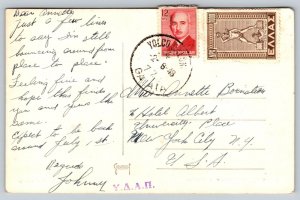 Dear Annette
Just a few lines
to say I'm still
bouncing around from
place to place.
Feeling fine and
hope this finds
you and yours the
same.
Expect to be back
around July 1st.
Regards
Johnny
Annette
Hotel Albert
University Place
New York City N.Y.
U S A
ΕΛΛΑΣ
Υ.Δ.Α.Π.